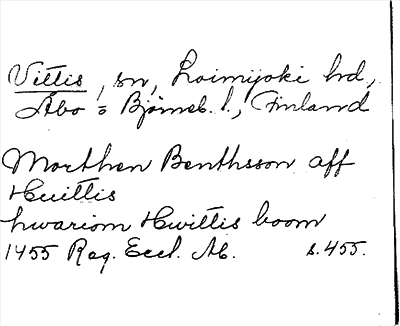 Vittis, sn, Loimijoki hd,
Åbo o Björneb. l., Finland
Morthen Benthsson aff
Huittis
hwariom Hwittis boom
1455 Reg. Eccl. Ab. s. 455.